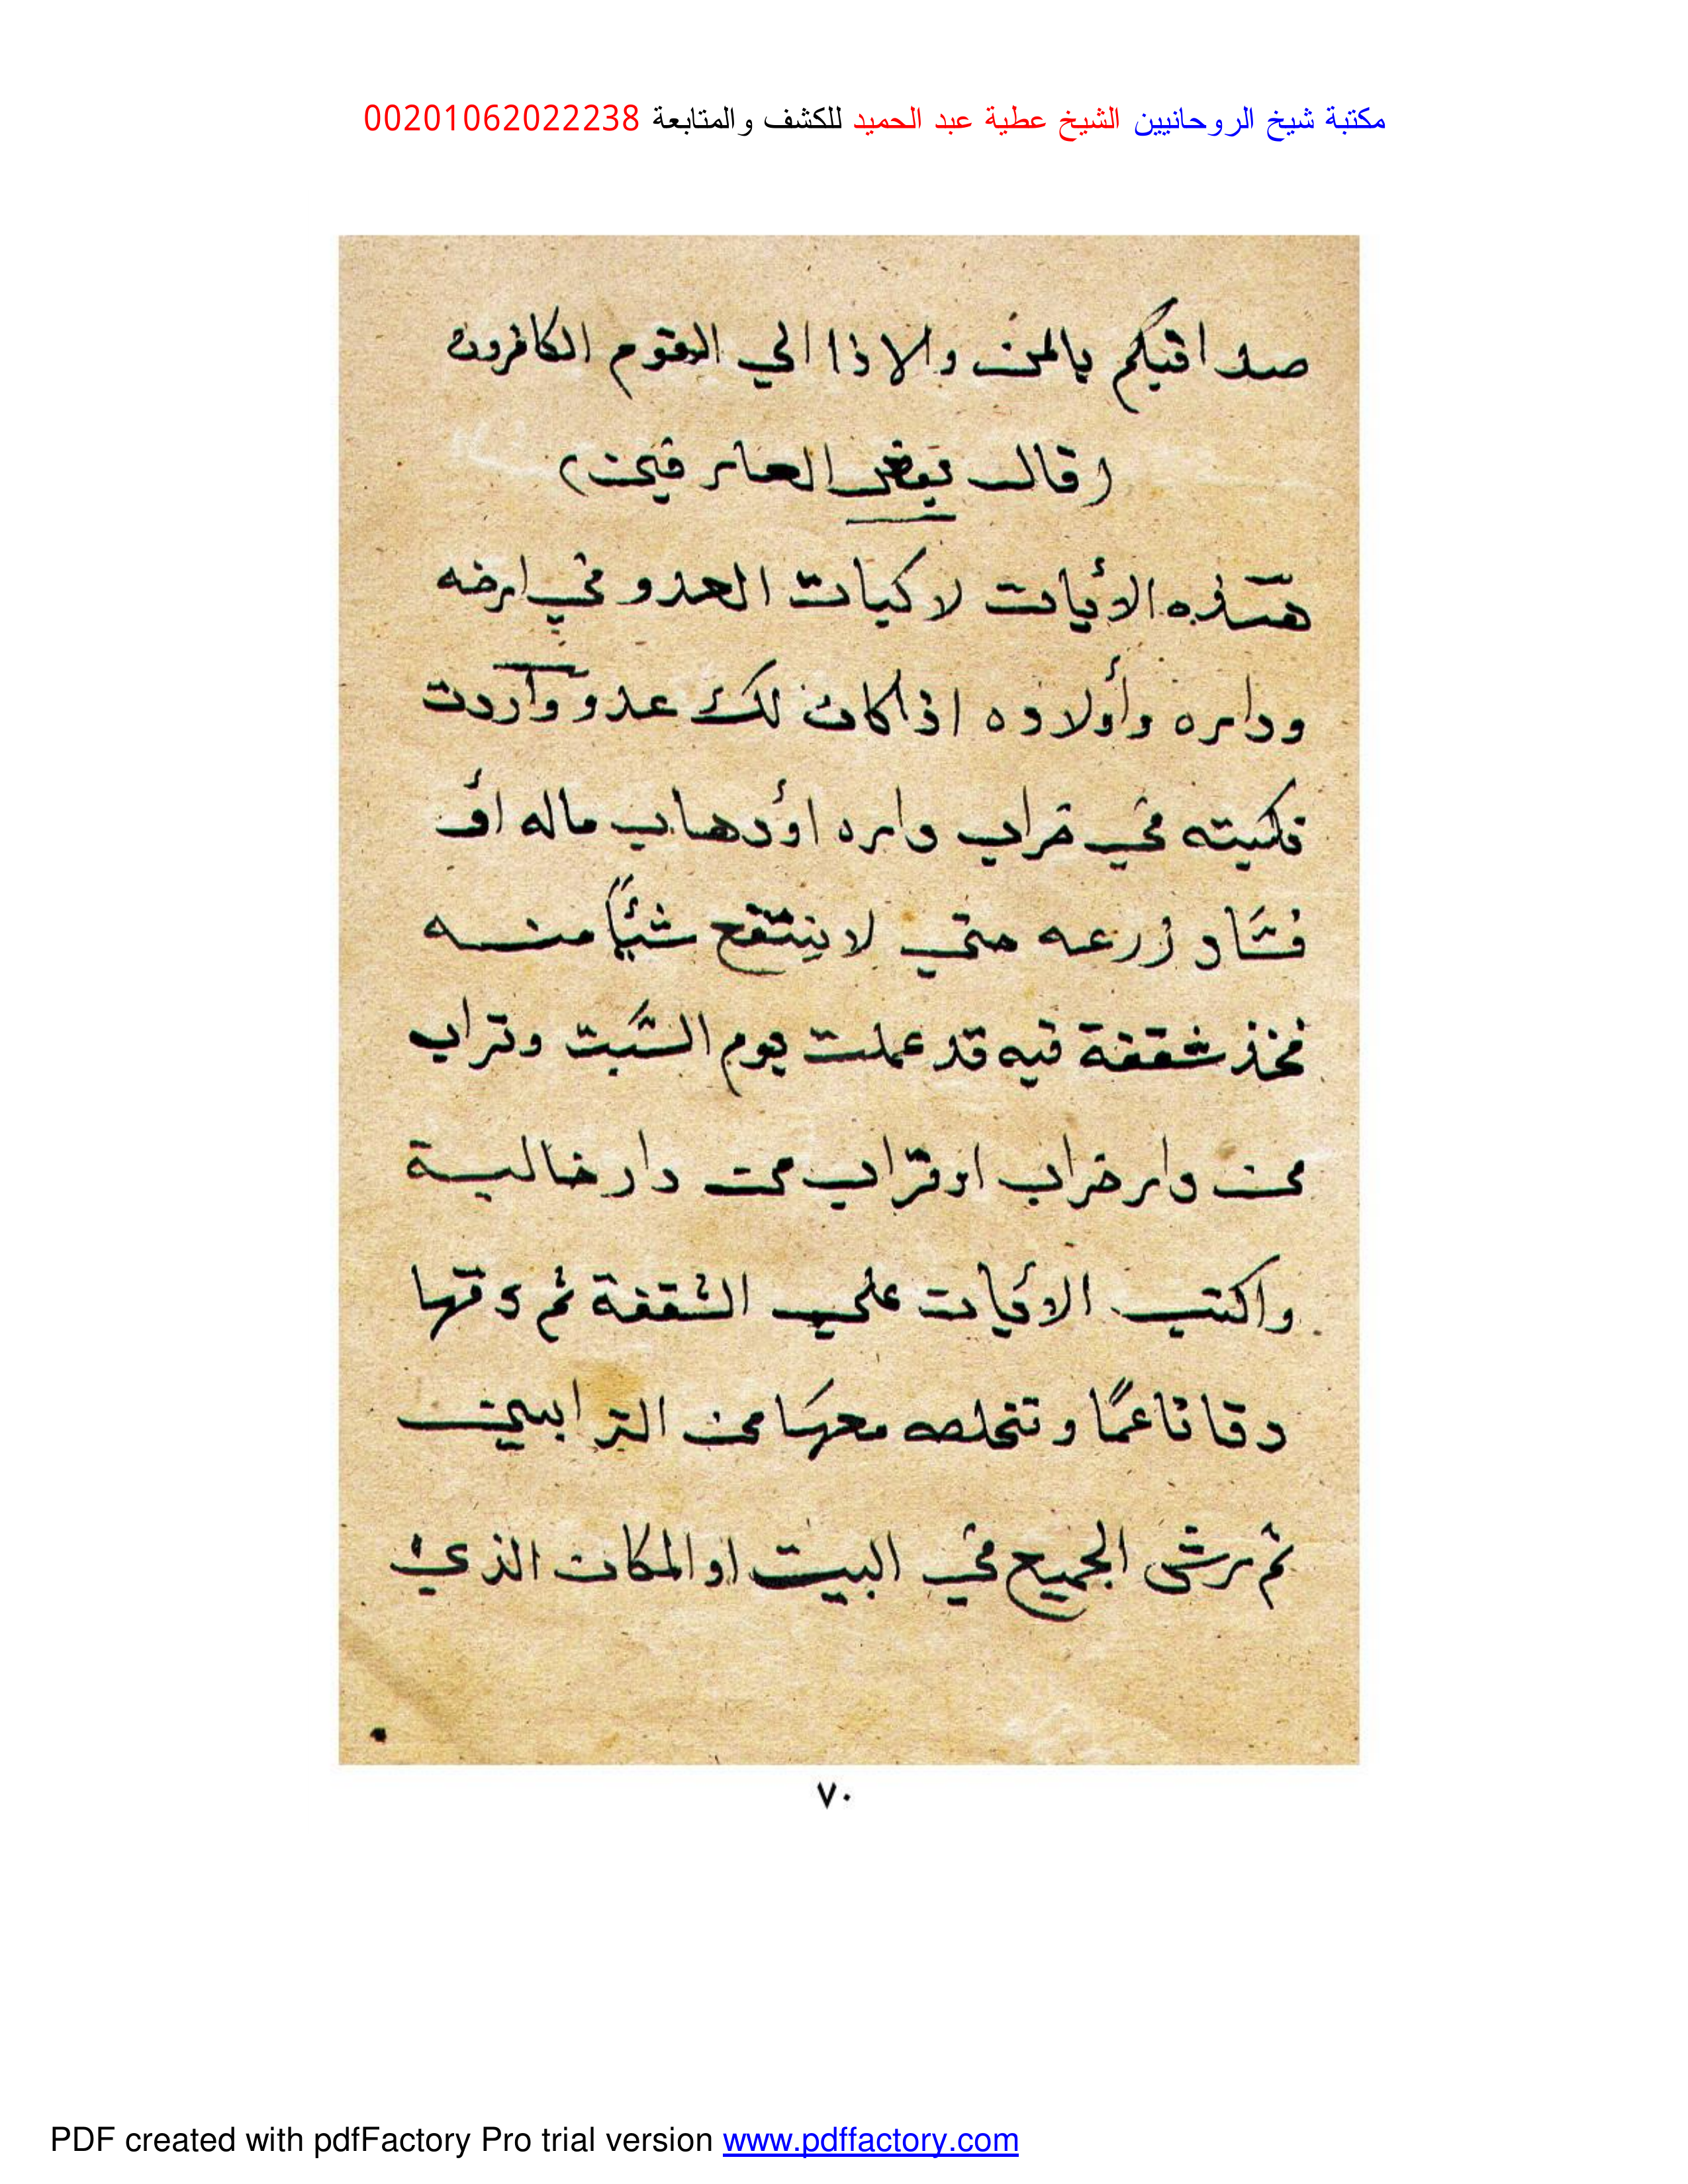 مكتبة شيخ الروحانيين الشيخ عطية عبد الحميد للكشف والمتابعة 00201062022238
صداقتكم بالمن والاذا الي القوم الكافرون
(قال بعض العارفين)
هذه الأيات لاكيات العدو في ارضه
وداره وأولاده اذا كان لك عدو وآردت
نكيته في خراب داره اؤدهاب ماله أو
فساد زرعه حتي لا ينتفع شئياً منه
فخذ شقفة نيه قد عملت يوم السبت وتراب
من دار خراب او تراب من دار خالية
واكتب الأيات علي الشقفة ثم دقها
دقا ناعمًا وتخلصه معها من الترابين
ثم رش الجميع في البيت او المكان الذي
٧٠
PDF created with pdfFactory Pro trial version www.pdffactory.com